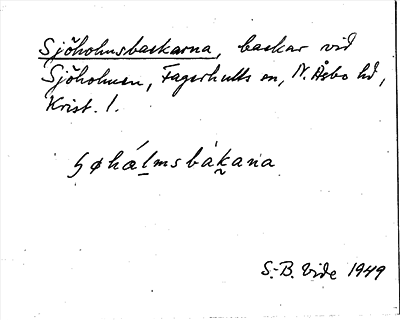 Sjöholmsbackarna, backar vid
Sjöholmen, Fagerhults sn, N. Åsbo hd,
Krist. l.
S.-B. Vide 1949